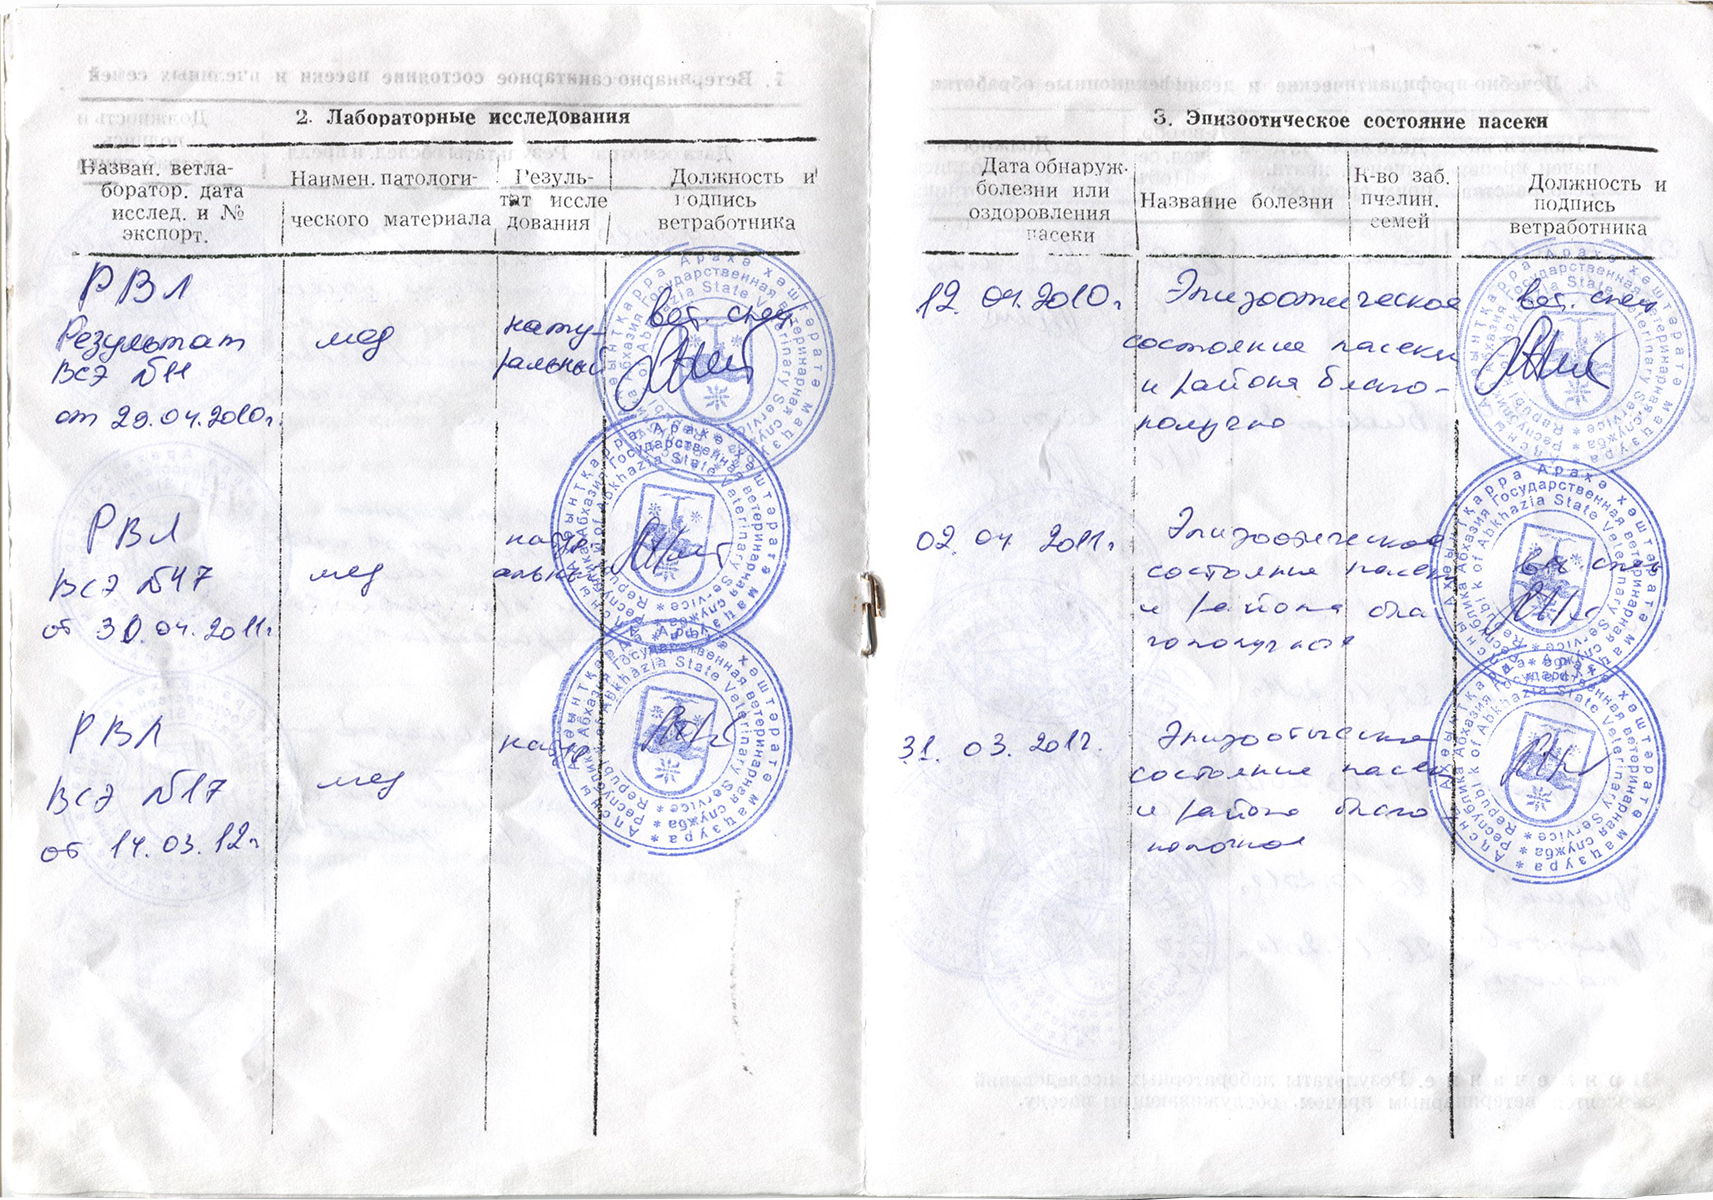 2. Лабораторные исследования
Назван. ветла-
боратор. дата
исслед. и №
экспорт.
Наимен. патологи-
ческого материала
Резуль-
тат иссле
дования
Должность и
подпись
ветработника
РВЛ
Результат
ВСЭ №11
от 29.04.2010г.
мед
нату-
ральный
вет. спец
РВЛ
ВСЭ №47
от 30.04.2011г.
мед
РВЛ
ВСЭ №17
от 14.03.12г.
мед
3. Эпизоотическое состояние пасеки
Дата обнаруж.
болезни или
оздоровления
пасеки
Название болезни
К-во заб.
пчелин.
семей
Должность и
подпись
ветработника
12.04.2010г
Эпизоотическое
состояние пасеки
и района благо-
получно
вет. спец
02.04 2011г.
Эпизоотическое
состояние пасеки
и района бла
31.03.2012.
Эпизоотическое
состояние пасеки
и района благо
Аԥсны Республика
Государственная ветеринарная служба
Республика Абхазия
Republic of Abkhazia State Veterinary Service